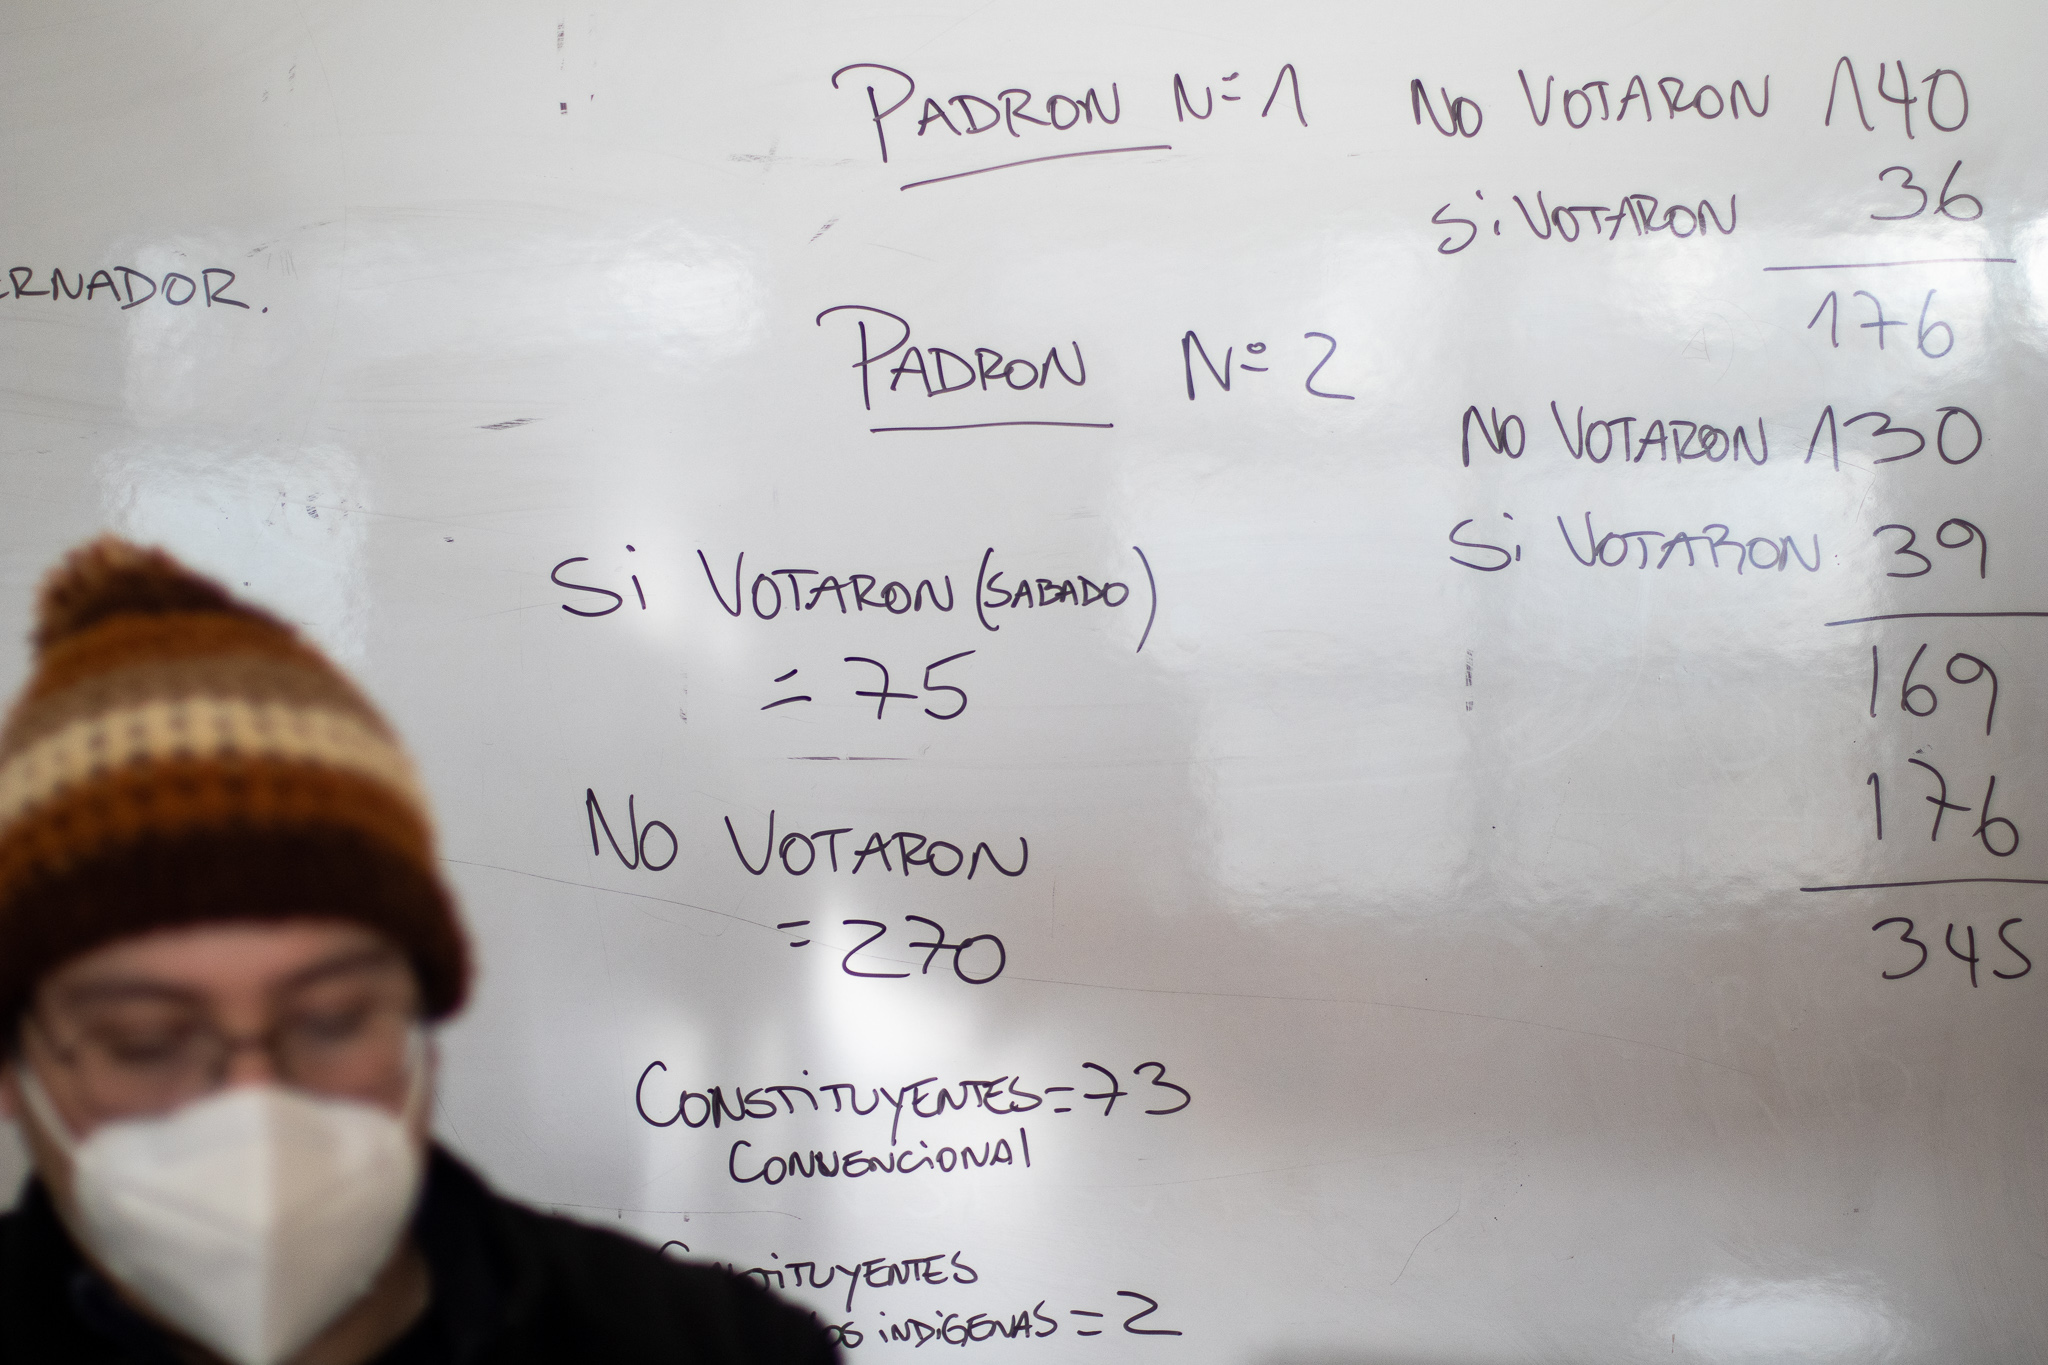 PADRON N=1 NO VOTARON 140
Si VOTARON 36
176
ERNADOR.
PADRON Nº 2
NO VOTARON 130
Si VOTARON 39
169
176
345
Si VOTARON (SABADO)
= 75
NO VOTARON
= 270
CONSTiTUYENTES = 73
CONVENCiONAl
iNDiGENAS = 2